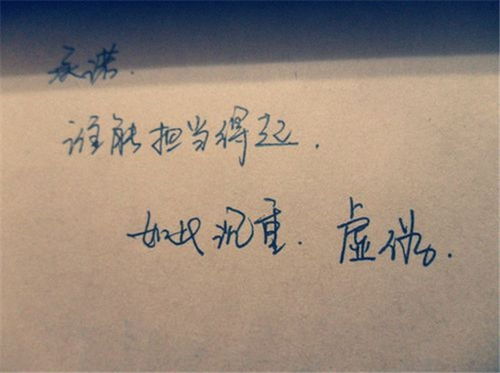 承诺.
谁能担当得起.
如此沉重. 虚伪.